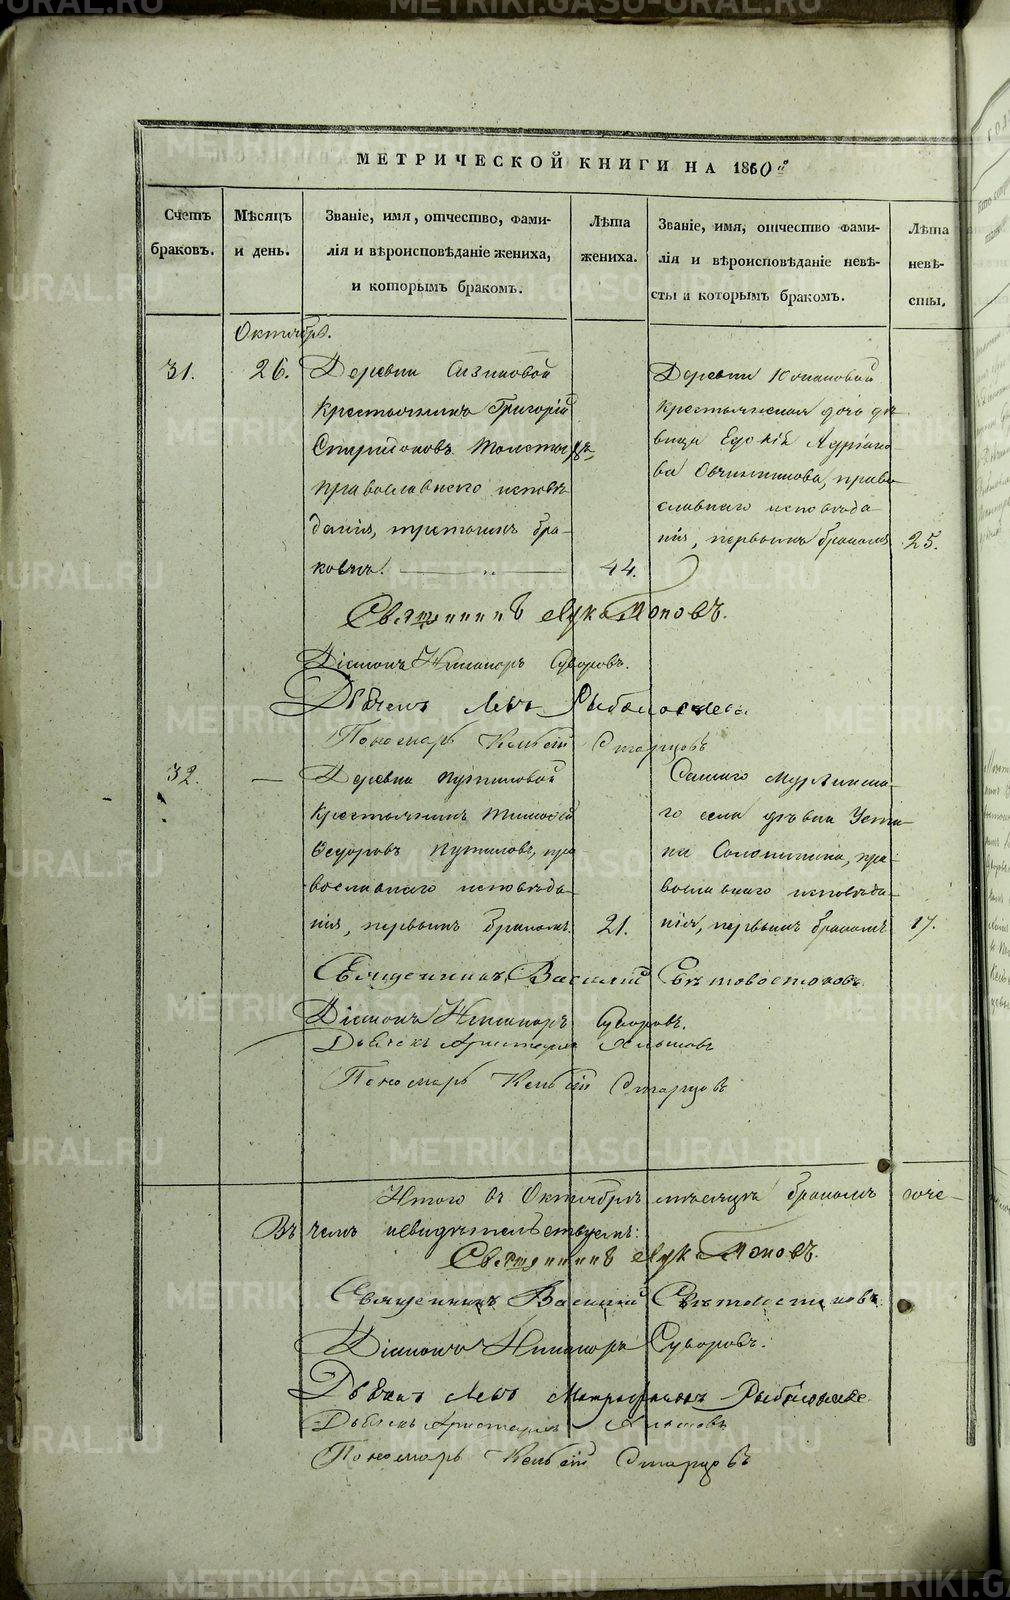 METRIKI.GASO-URAL.RU
МЕТРИЧЕСКОЙ КНИГИ НА 1860й
Счетъ браковъ.
Мѣсяцъ и день.
Званіе, имя, отчество, фами-
лія и вѣроисповѣданіе жениха,
и которымъ бракомъ.
Лѣта жениха.
Званіе, имя, отчество фами-
лія и вѣроисповѣданіе невѣ-
сты и которымъ бракомъ.
Лѣта невѣ-
сты.
Октябрь.
31.
26.
Деревни Сизиковой
крестьянинъ Григорій
Спиридоновъ Толстыхъ,
православнаго исповѣ
данія, третьимъ бра-
комъ.
44.
Деревни
крестьянская дочь дѣ
вица Адріано
ва Овчинникова, право
славнаго исповѣда-
нія, первымъ бракомъ
25.
Священникъ Лука Поповъ.
Діаконъ Никаноръ Суворовъ.
Дьячекъ Левъ
Пономарь Старцовъ
32.
—
Деревни Путиловой
крестьянинъ Тимофей
Ѳедоровъ Путиловъ, пра
вославнаго исповѣда-
нія, первымъ бракомъ
21.
Самаго Мурзинска-
го села дѣвица Усти-
на, пра-
вославнаго исповѣда-
нія, первымъ бракомъ
17.
Священникъ Василій Свѣтовостоковъ.
Діаконъ Никаноръ Суворовъ.
Дьячекъ
Пономарь Старцовъ
Итого въ Октябрѣ мѣсяцѣ бракомъ соче-
Въ чемъ и свидѣтельствуемъ:
Священникъ Лука Поповъ.
Священникъ Василій Свѣтовостоковъ.
Діаконъ Никаноръ Суворовъ.
Дьячекъ Левъ
Дьячекъ
Пономарь Старцовъ